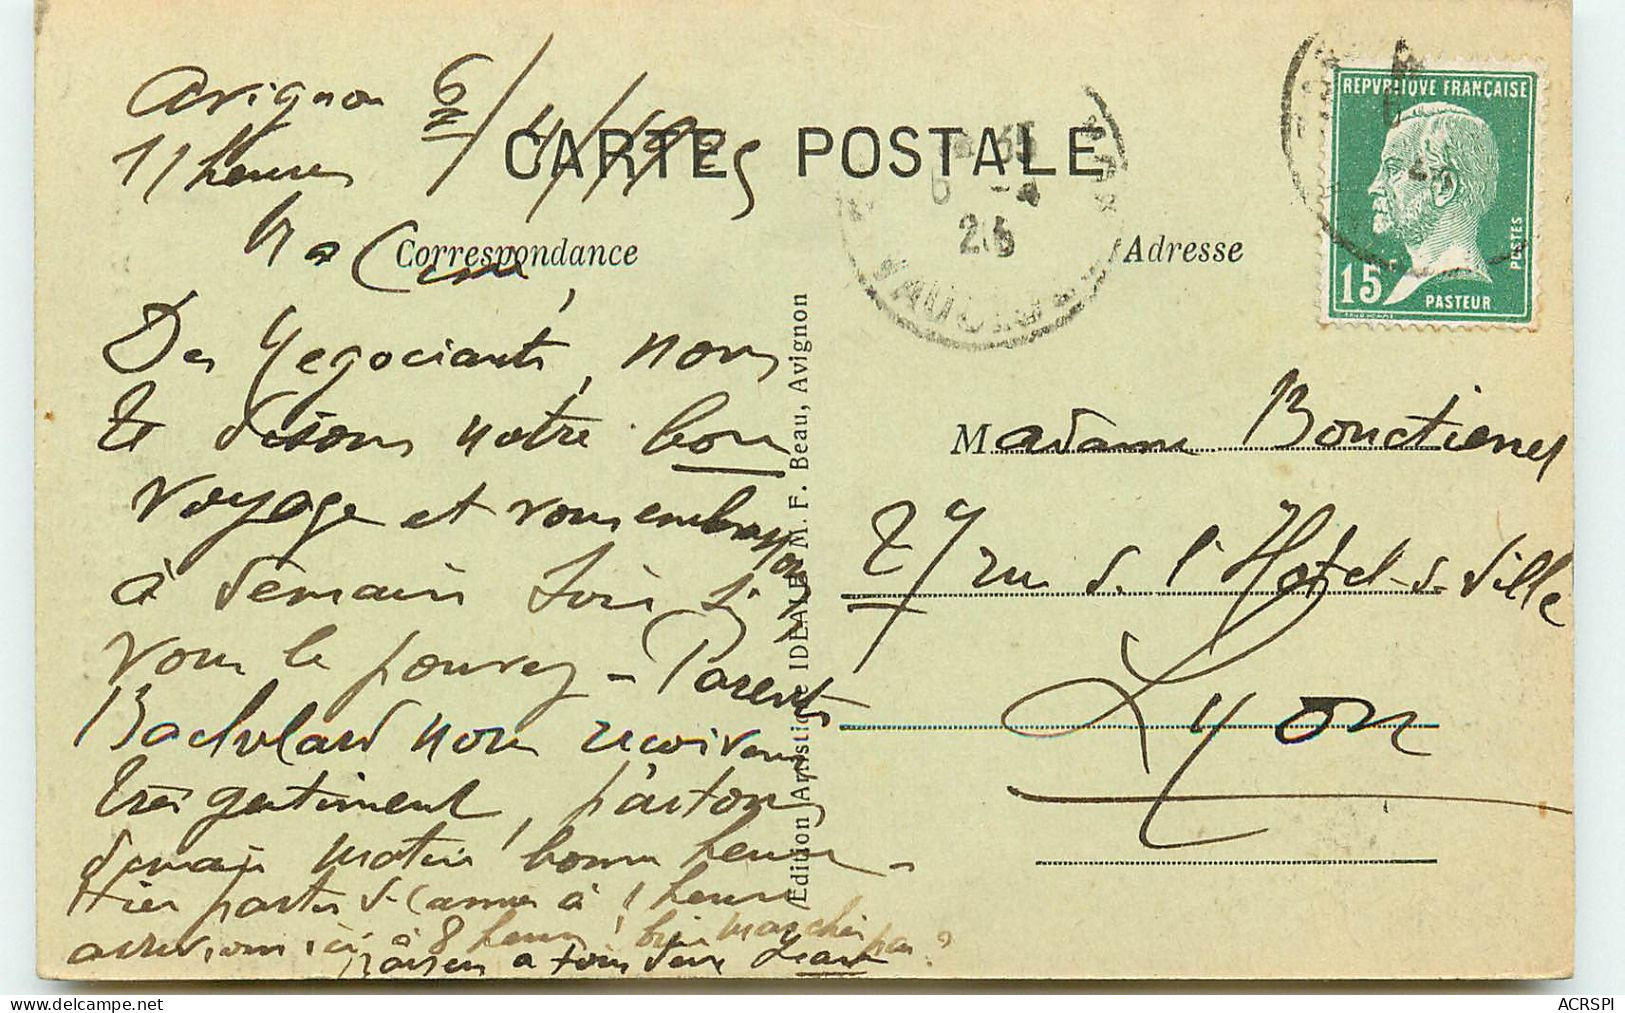 Avignon 6/4/1925
11 heures
CARTE POSTALE
Ma
Correspondance
Adresse
REPVBLIQUE FRANÇAISE
15c
POSTES
PASTEUR
VAUCLUSE
Des Négociants, nous
te disons notre bon
voyage et vous embrassons
à demain soir si
vous le pouvez - Parents
Bachelard nous
très gentiment, partons
demain matin bonne heure -
Hier partis de Cannes à 1 heure
ici à 8 heures bien marché
à tous deux Jean
Edition Artistique IDEALE M. F. Beau, Avignon
Madame Bouctienel
27 rue de l'Hotel-de Ville
Lyon
ACRSPI